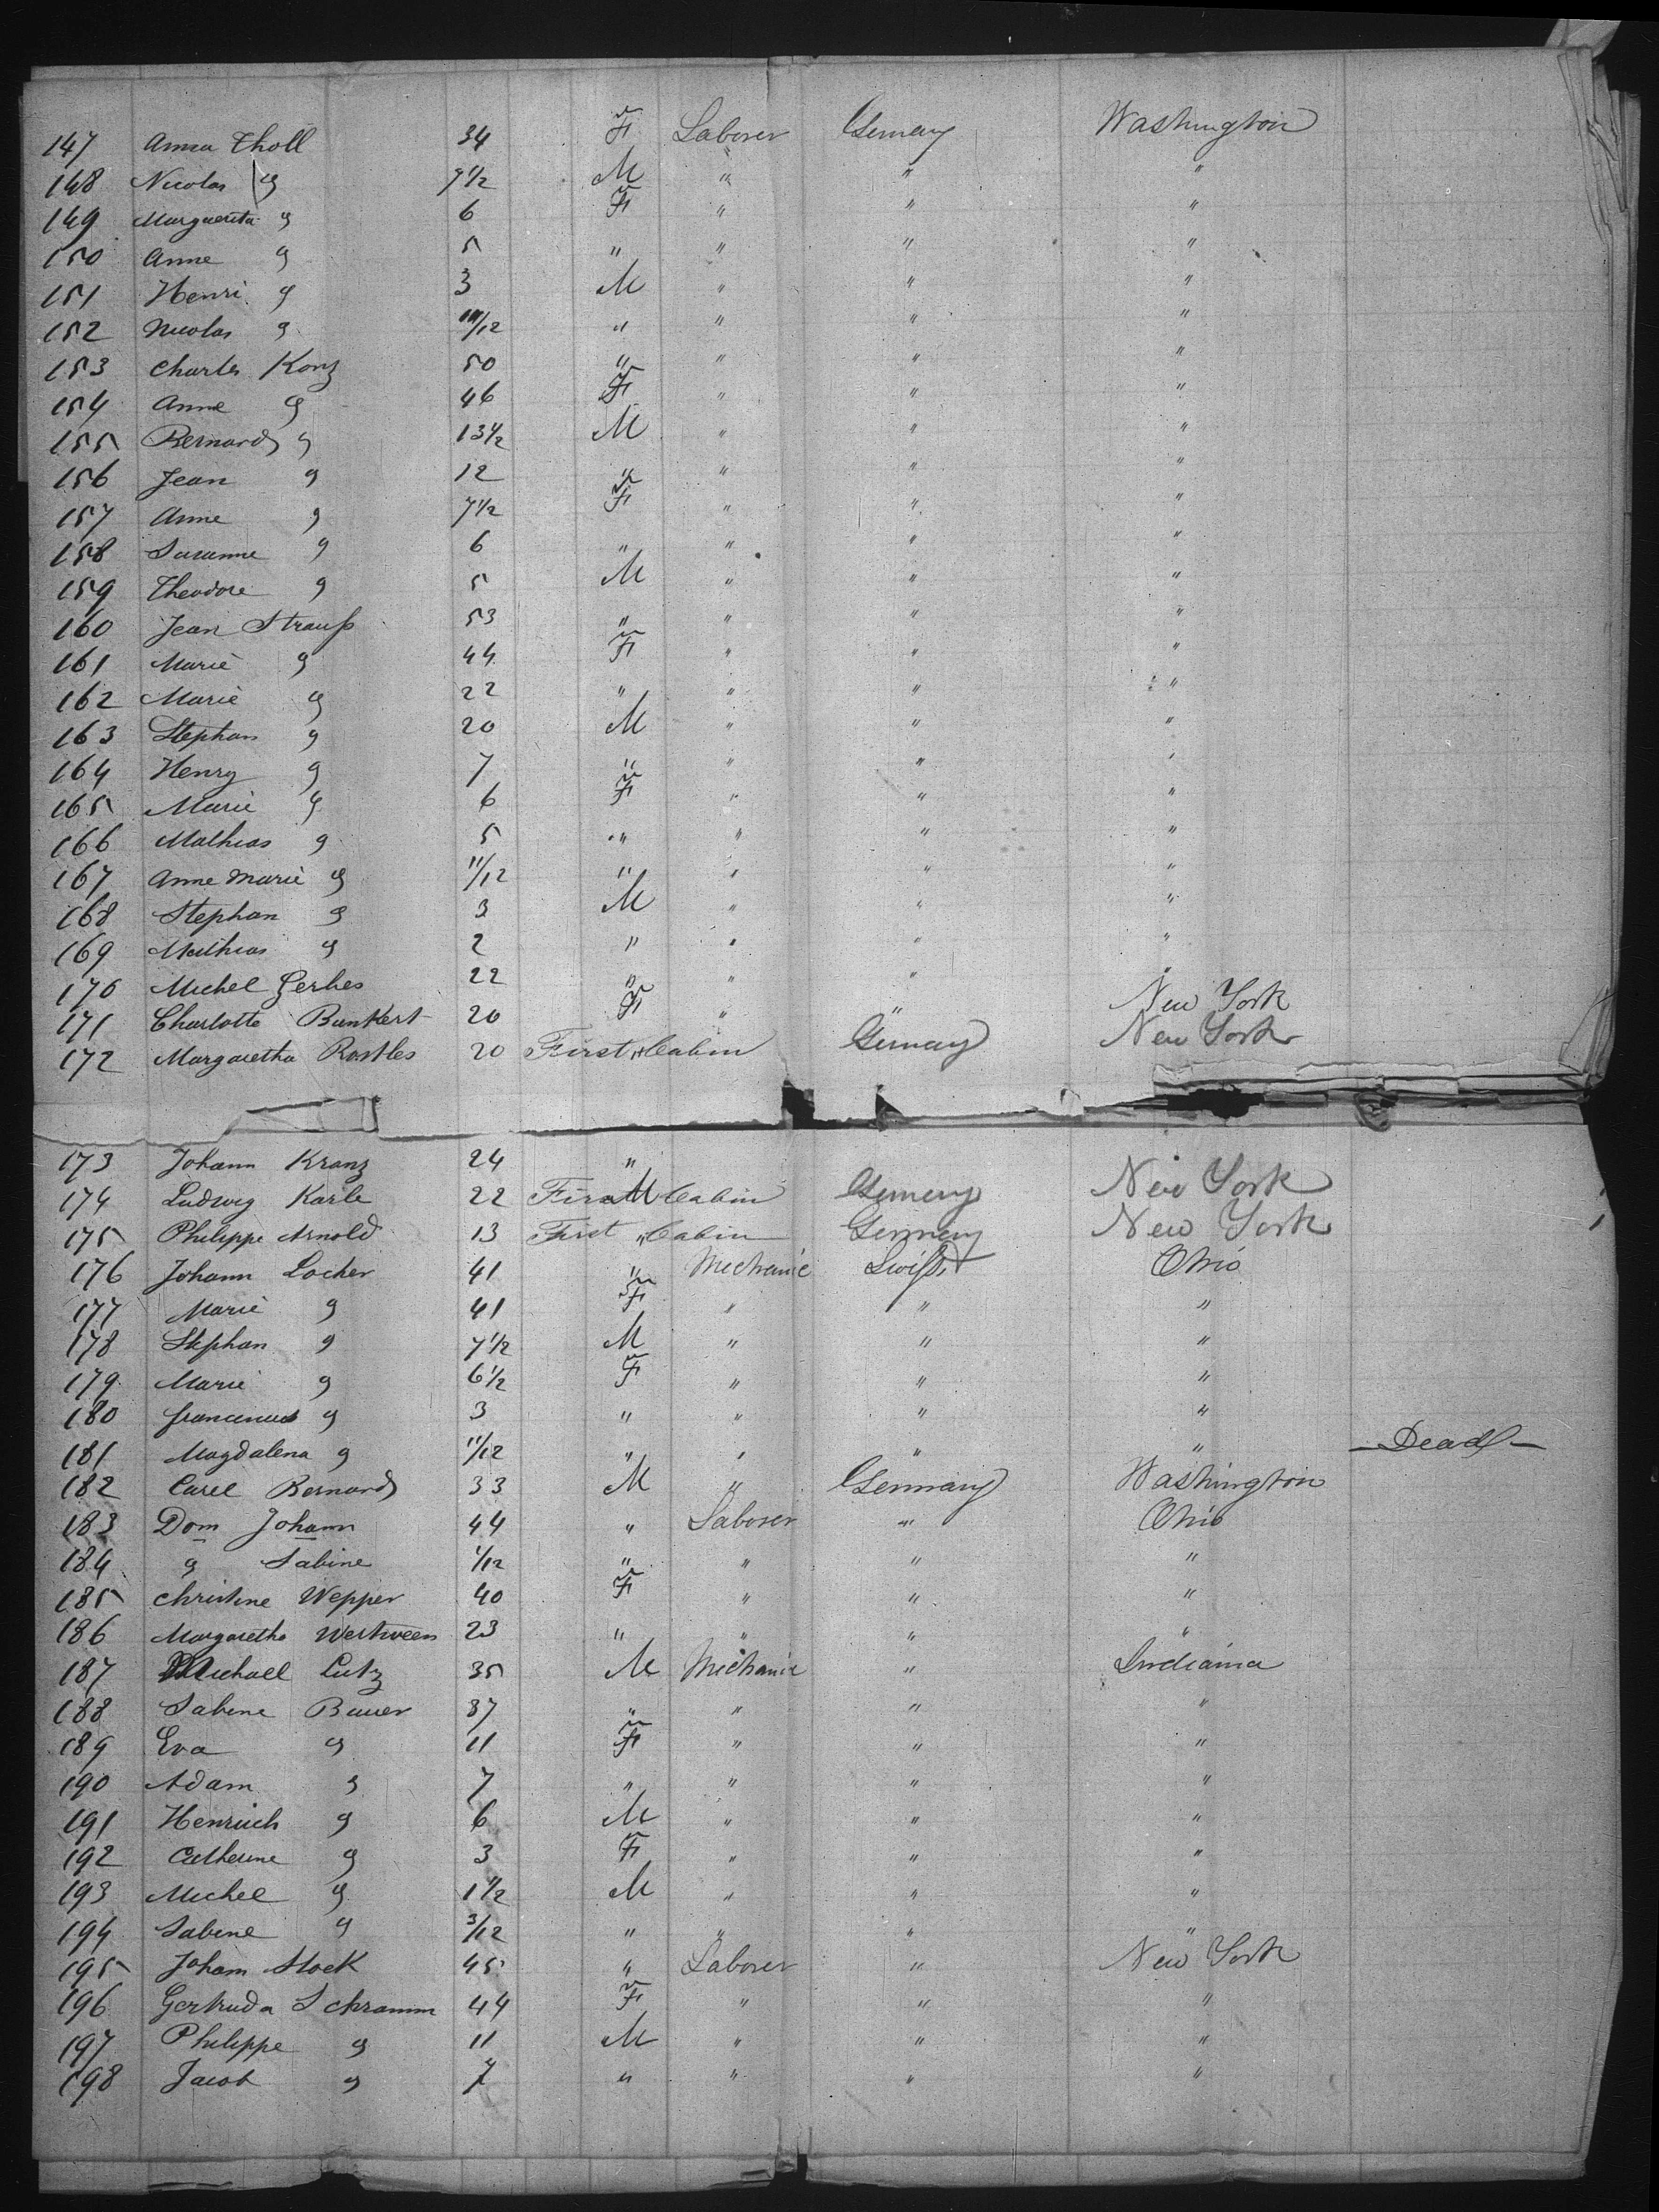 147 Anna Tholl 34 F Laborer Germany Washington
148 Nicolas " 7 1/2 M " " "
149 Marguerita " 6 F " " "
150 Anne " 5 " " " "
151 Henri " 3 M " " "
152 Nicolas " 11/12 " " " "
153 Charles Konz 50 " " " "
154 Anne " 46 F " " "
155 Bernard " 13 1/2 M " " "
156 Jean " 12 " " " "
157 Anne " 7 1/2 F " " "
158 Susanne " 6 " " " "
159 Theodore " 5 M " " "
160 Jean Strauß 53 " " " "
161 Marie " 44 F " " "
162 Marie " 22 " " " "
163 Stephan " 20 M " " "
164 Henry " 7 " " " "
165 Marie " 6 F " " "
166 Mathias " 5 " " " "
167 Anne Marie " 11/12 " " " "
168 Stephan " 3 M " " "
169 Mathias " 2 " " " "
170 Michel Gerbes 22 " " " "
171 Charlotte Bunkert 20 F " " New York
172 Margaretha Rostles 20 First " Cabin Germany New York
173 Johann Kranz 24 "
174 Ludwig Karle 22 First M Cabin Germany New York
175 Philippe Arnold 13 First " Cabin Germany New York
176 Johann Locher 41 " Mechanic Swißd Ohio
177 Marie " 41 F " " "
178 Stephan " 7 1/2 M " " "
179 Marie " 6 1/2 F " " "
180 " 3 " " " "
181 Magdalena " 11/12 " " " " Dead
182 Carel Bernard 33 M " Germany Washington
183 Dom Johann 44 " Laborer " Ohio
184 " Sabine 1/12 " " " "
185 Christine Wepper 40 F " " "
186 Margaretha Westween 23 " " " "
187 Michael Lutz 35 M Mechanic " Indiana
188 Sabine Bauer 37 " " " "
189 Eva " 11 F " " "
190 Adam " 7 " " " "
191 Henrich " 6 M " " "
192 Catherine " 3 F " " "
193 Michel " 1 1/2 M " " "
194 Sabine " 3/12 " " " "
195 Johann Stock 45 " Laborer " New York
196 Gertruda Schramm 44 F " " "
197 Philippe " 11 M " " "
198 Jacob " 7 " " " "